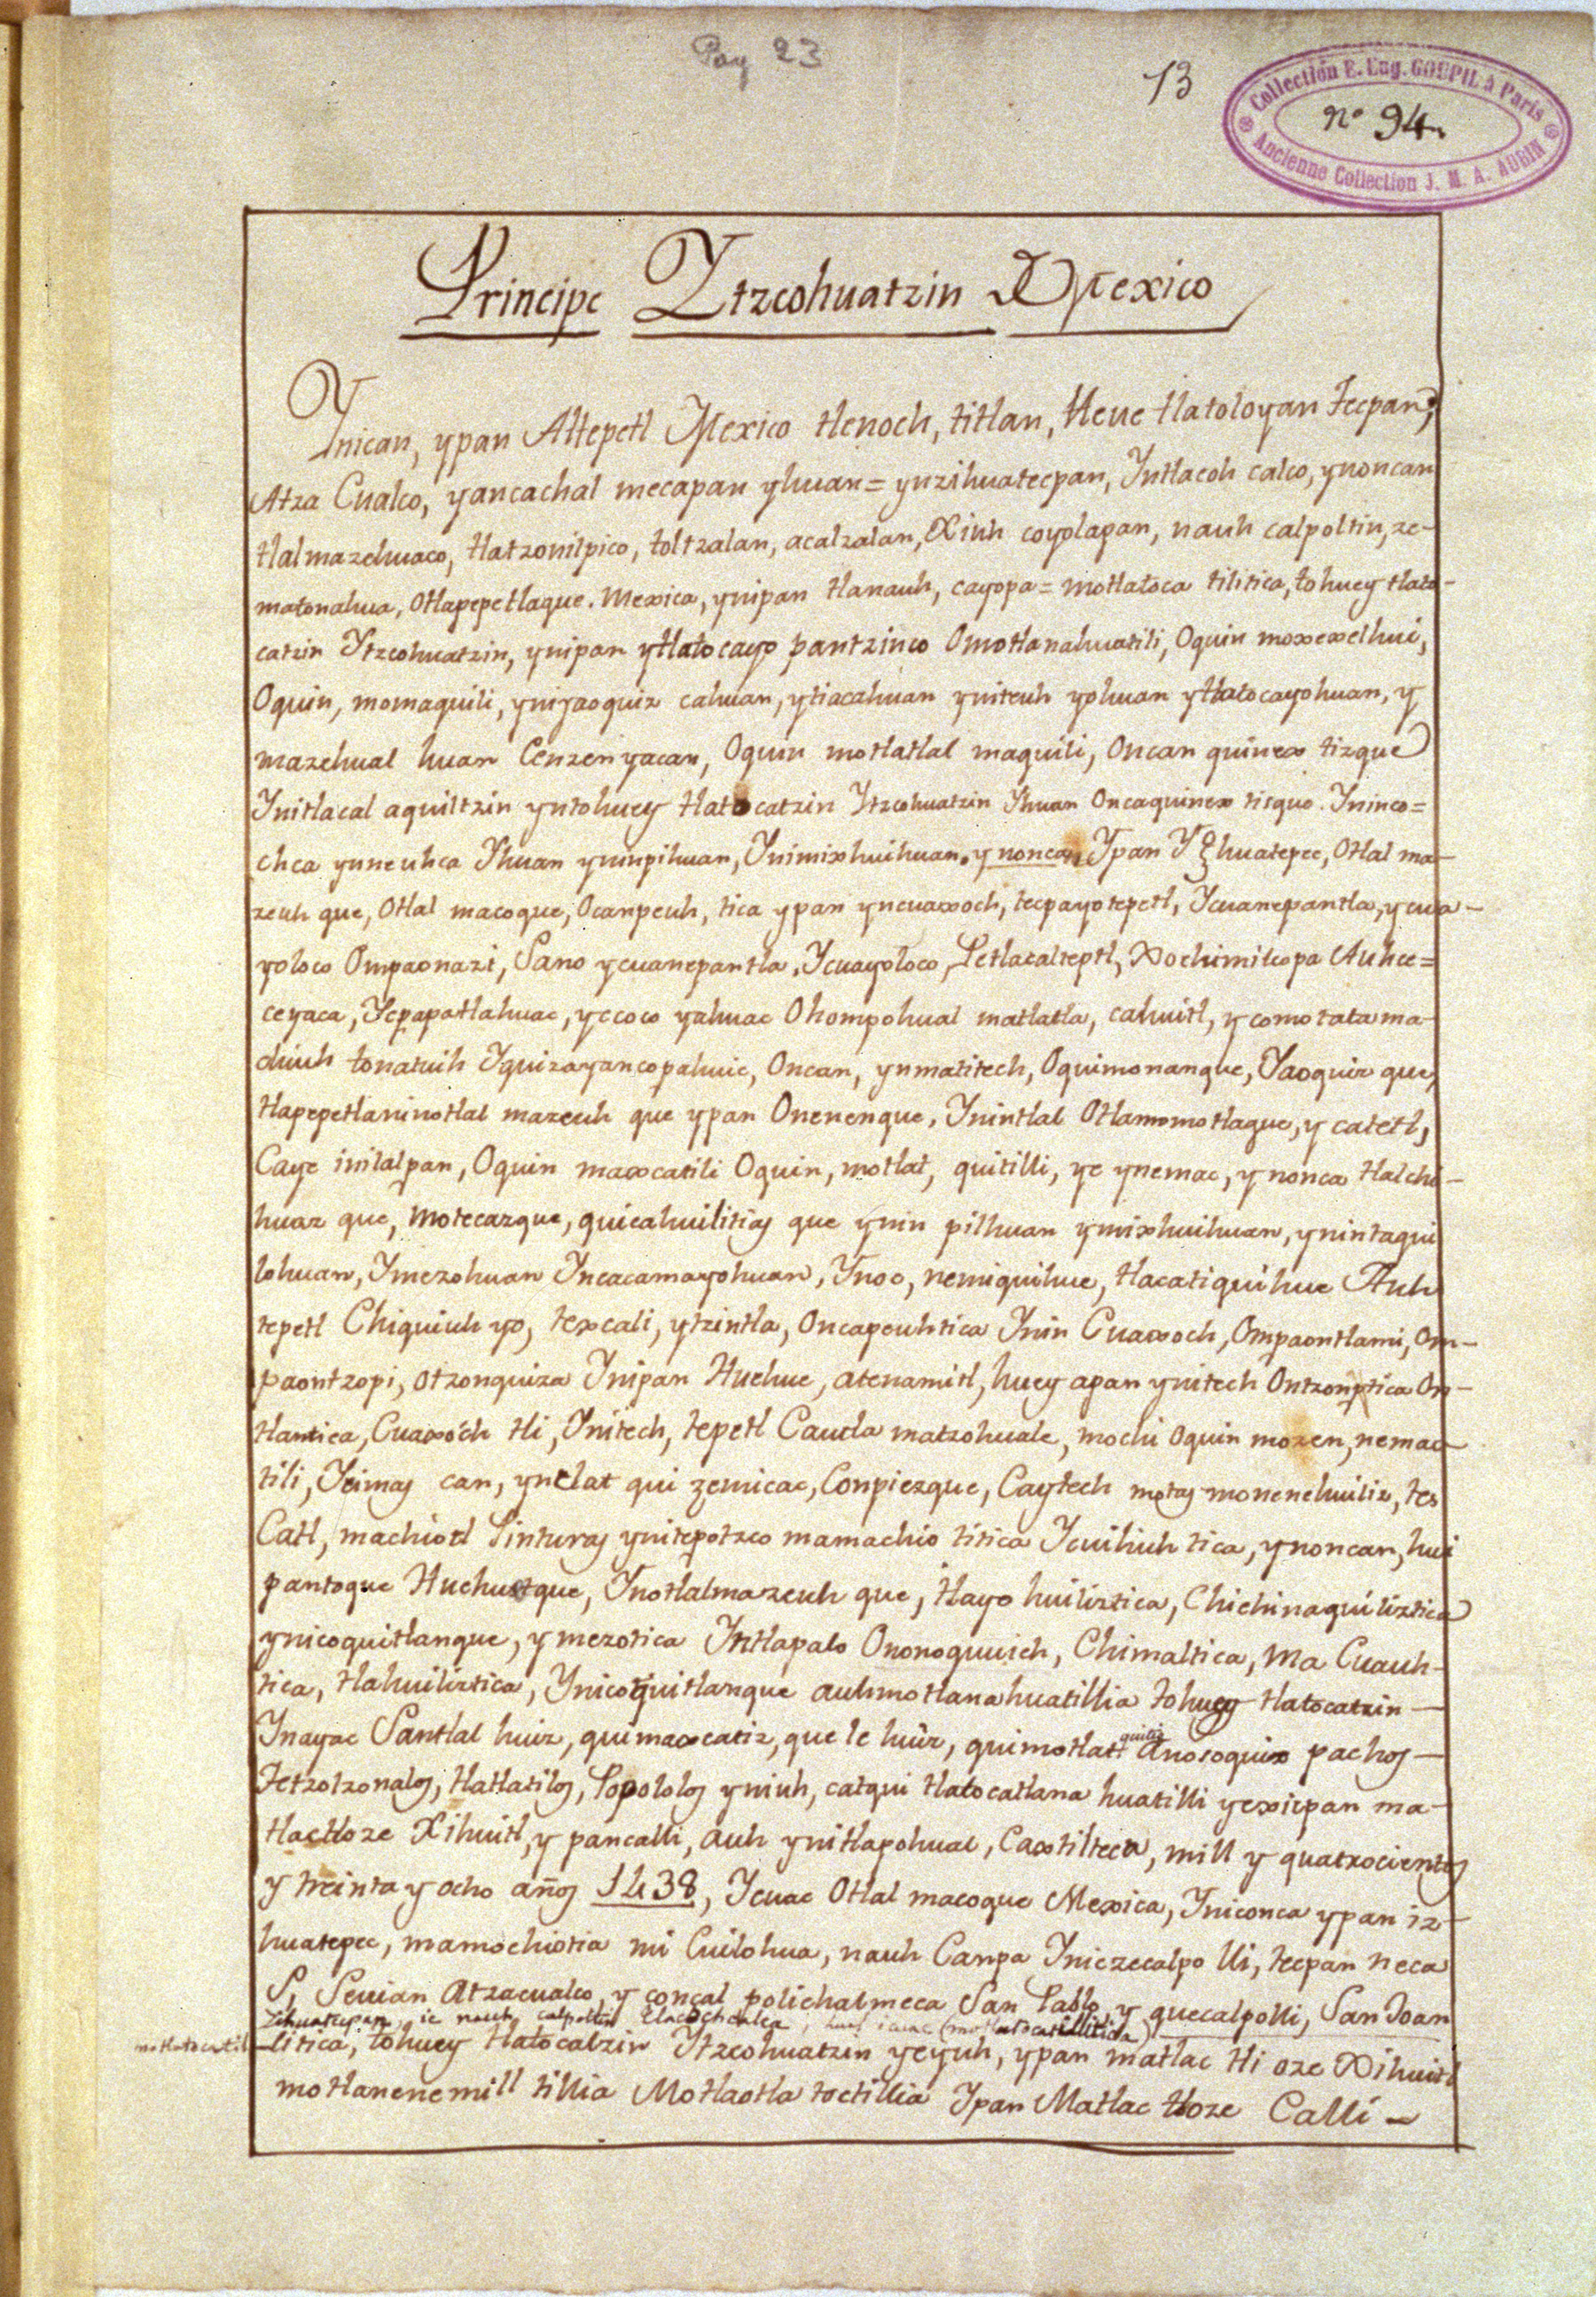 Pag 23
13
Collection E. Eug. GOUPIL à Paris
nº 94
Ancienne Collection J. M. A. AUBIN
Principe Ytzcohuatzin Mexico
Ynican, ypan Altepetl Mexico tlenoch, titlan, Heue tlatoloyan Tecpan,
Atza Cualco, yancachal mecapan yhuan= ynzihuatecpan, Yntlacoh calco, ynoncan
tlalmazehuaco, tlatzonilpico, toltzalan, acalzalan, Xiuh coyolapan, nauh calpoltin, ze-
matonahua, Otlapepetlaque. Mexica, ynipan tlanauh, cayopa= motlatoca tilitica, tohuey tlato-
catzin Ytzcohuatzin, ynipan ytlatocayo pantzinco Omotlanahuatili, Oquin moxexelhui,
Oquin, momaquili, yniyaoquiz cahuan, ytiacahuan yniteuh yohuan ytlatocayohuan, y
mazehual huan Cenzenyacan, Oquin motlatlal maquili, Oncan quinex tizque
Ynitlacal aquiltzin yntohuey tlatocatzin Ytzcohuatzin Yhuan Oncaquinex tisque. Yninco=
chca ynneuhca Yhuan yninpihuan, Ynimixhuihuan, ynoncan Ypan Yzhuatepec, Otlal ma-
zeuh que, Otlal macoque, Ocanpeuh, tica ypan yncuaxoch, tecpayotepetl, Ycuanepantla, ycua-
yoloco Ompaonazi, Sano ycuanepantla, Ycuayoloco, Petlacalteptl, Xochimilcopa Auhce=
ceyaca, Ycpapatlahuac, yccoco yahuac Ohompohual matlatla, cahuitl, ycomotatama-
chiuh tonatuih Yquizayancopahuic, Oncan, ynmatitech, Oquimonanque, Yaoquiz que,
tlapepetlaninotlal mazeuh que ypan Onenenque, Ynintlal Otlamomotlaque, y catetl,
Caye inilalpan, Oquin maxcatili Oquin, motlat, quitilli, ye ynemac, ynonca tlalchi-
huaz que, motecazque, quicahuilitias que ynin pilhuan ymixhuihuan, ynintaqui
lohuan, Ymezohuan Yncacamayohuan, Ynoc, nemiquihue, tlacatiquihue Auh
tepetl Chiquiuh yo, texcali, ytzintla, Oncapeuhtica Ynin Cuaxoch, Ompaontlami, Om-
paontzopi, otzonquiza Ynipan Huehue, atenamitl, huey apan ynitech Ontzonptica On-
tlamtica, Cuaxoch tli, Ynitech, tepetl Cauda matzohuale, mochi oquin mozen, nemac
tili, Yeimas can, ynclat qui zemicac, Conpiezque, Caytech motas monenehuiliz, tes
Catl, machiotl Pinturas ynitepotzco mamachio titica Ycuihiuh tica, ynoncan, hui
pantoque Huehuetque, Ynotlalmazeuh que, tlayo huiliztica, Chichinaquiliztica
ynicoquitlanque, ymezotica Yntlapalo Ononoquuich, Chimaltica, Ma Cuauh-
tica, tlahuiliztica, Ynicoquitlanque auhmotlanahuatillia tohuey tlatocatzin-
Ynayac Santlal huiz, quimaxcatiz, que le huiz, quimotlatt quitis Anosoquix pachos-
Tetzotzonalos, tlatlatilos, Popololos yniuh, catqui tlatocatlana huatilli yexicpan ma-
tlactloze Xihuitl, y pancalli, auh ynitlapohual, Caxtilteca, mill y quatrocientos
y treinta y ocho años 1438, Ycuac Otlal macoque Mexica, Yniconca ypan iz-
huatepec, mamochiotia mi Cuilohua, nauh Canpa Yniczecalpo lli, tecpan neca
S, Seuian Atzacualco, y concal polichalmeca San Pablo, y quecalpolli, San Joan
Zihuatepan, ic nauh calpoltin tlacochcalca, (motlatocatillitica)
motlatocatil
litica, tohuey tlatocatzin Ytzcohuatzin yeyuh, ypan matlac tli oze Xihuitl
motlanenemill tillia Motlaotla toctillia Ypan Matlac tloze Calli-